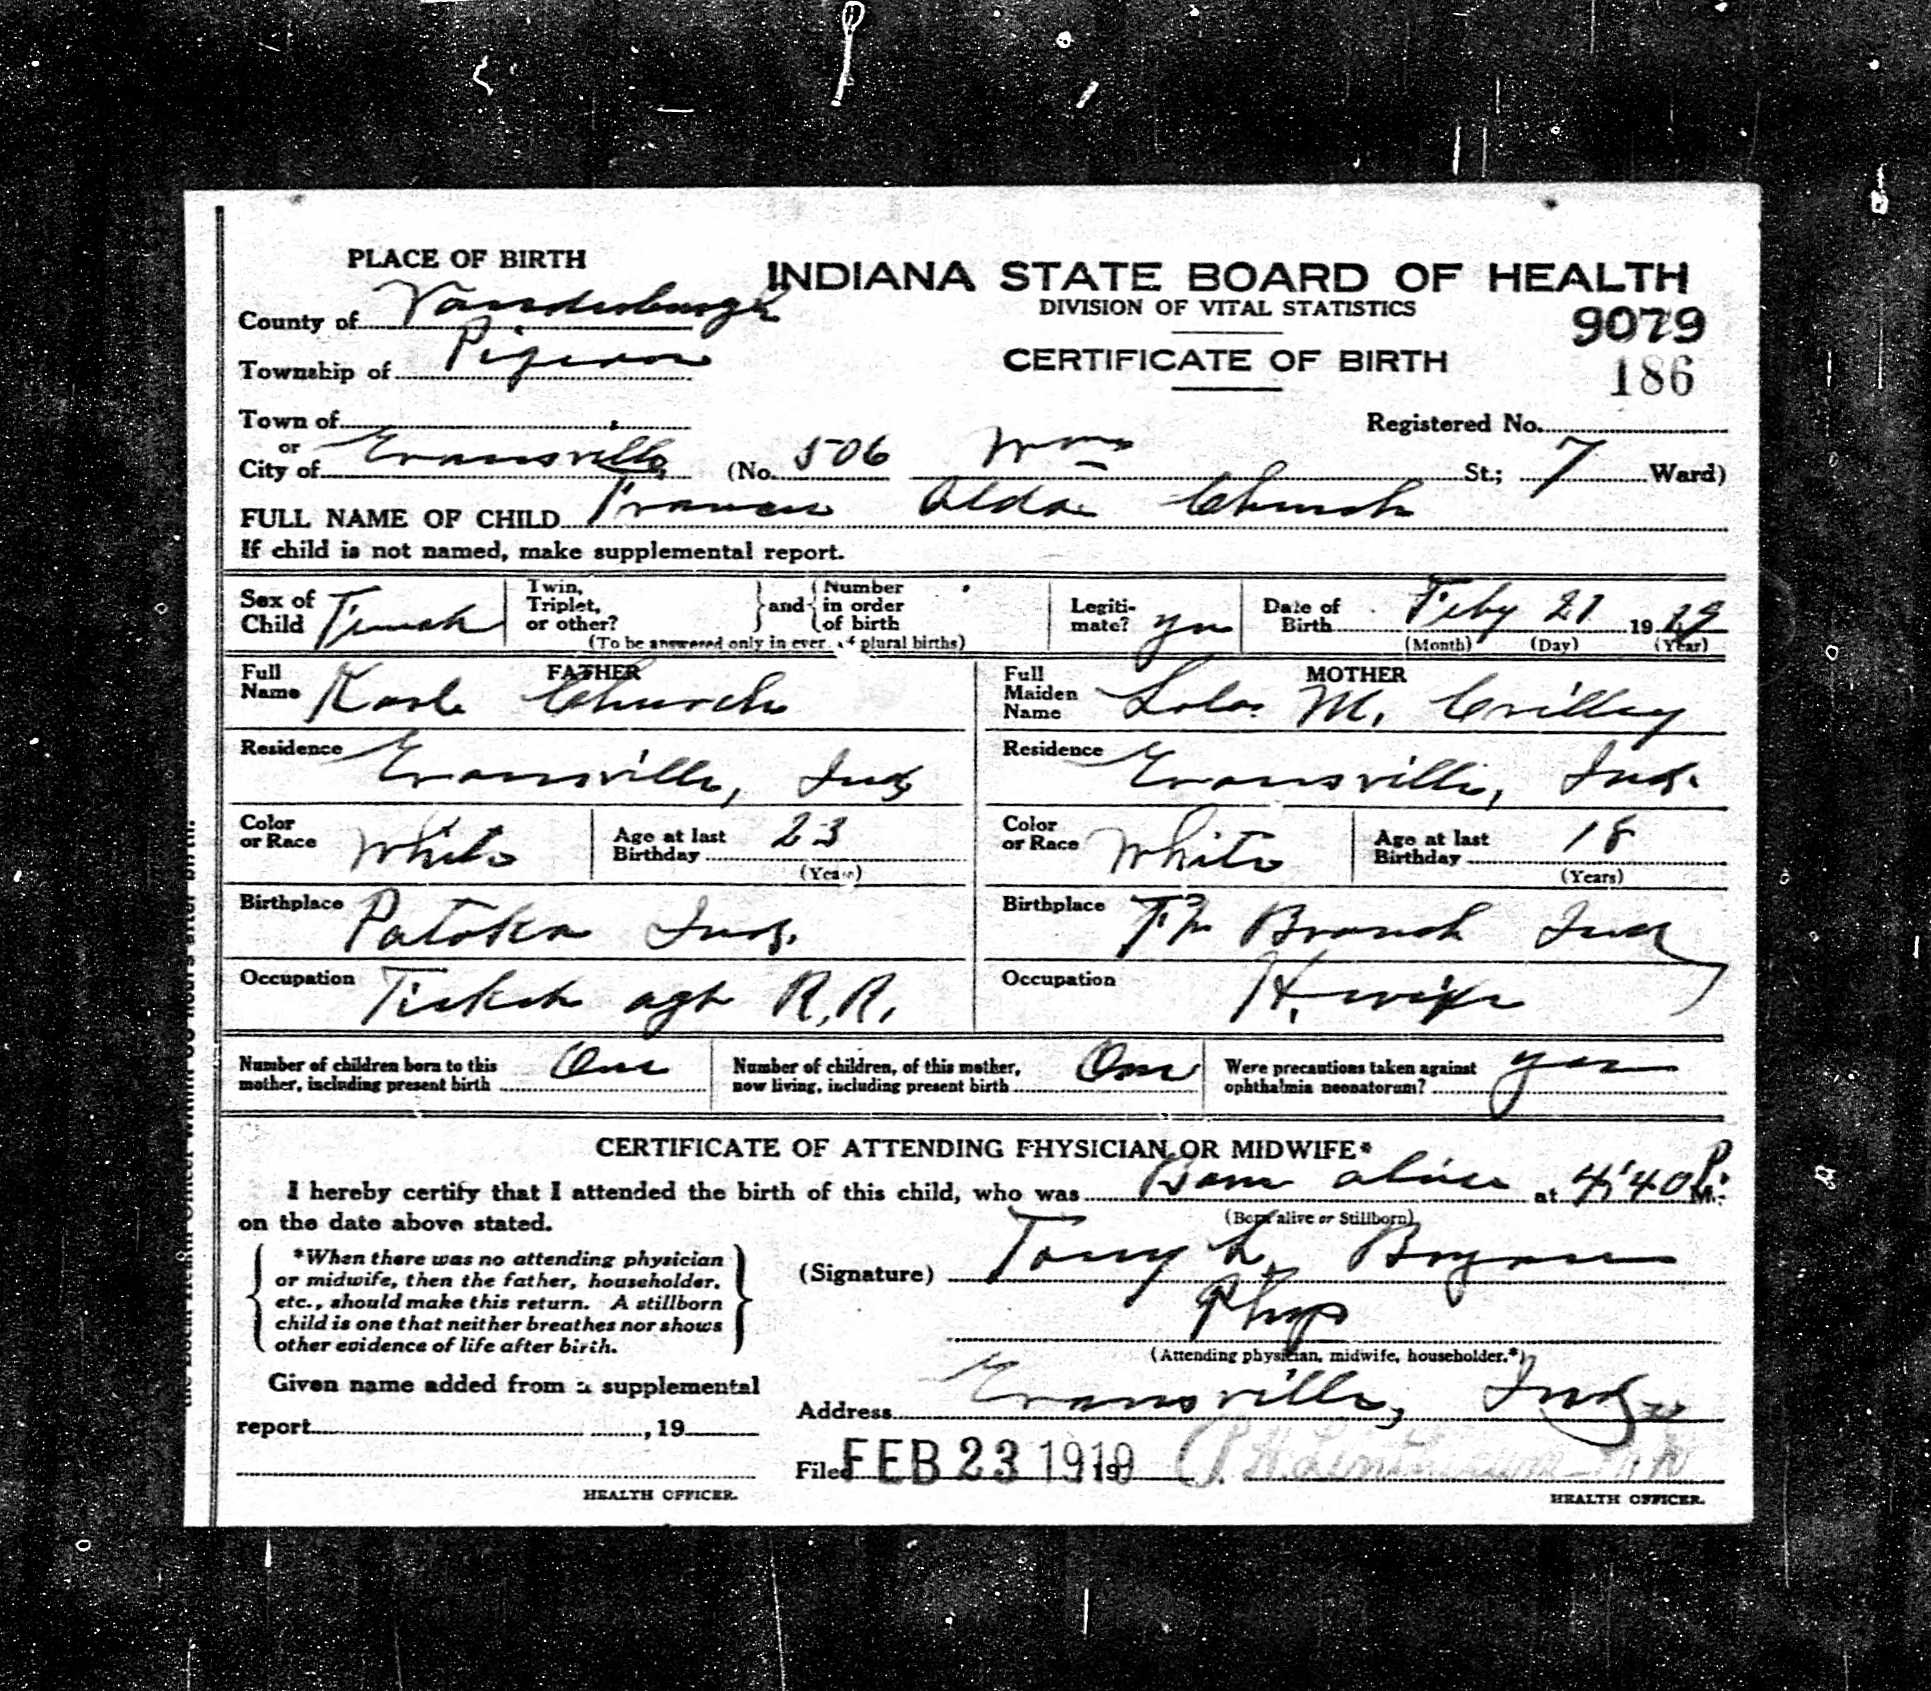 PLACE OF BIRTH
INDIANA STATE BOARD OF HEALTH
DIVISION OF VITAL STATISTICS
9079
CERTIFICATE OF BIRTH
186
County of Vanderburgh
Township of Pigeon
Town of
Registered No.
or
City of Evansville, (No. 506 Wm St.; 7 Ward)
FULL NAME OF CHILD Frances Alda Church
If child is not named, make supplemental report.
Sex of Child Female
Twin, Triplet, or other?
and
Number in order of birth
(To be answered only in plural births)
Legitimate? yes
Date of Birth Feby 21 1919
(Month) (Day) (Year)
FATHER
Full Name Karl Church
MOTHER
Full Maiden Name Lola M. Crilley
Residence Evansville, Ind.
Residence Evansville, Ind.
Color or Race White
Age at last Birthday 23
(Years)
Color or Race White
Age at last Birthday 18
(Years)
Birthplace Patoka Ind.
Birthplace Ft. Branch Ind
Occupation Ticket agt R.R.
Occupation H. wife
Number of children born to this mother, including present birth One
Number of children, of this mother, now living, including present birth One
Were precautions taken against ophthalmia neonatorum? yes
CERTIFICATE OF ATTENDING PHYSICIAN OR MIDWIFE*
I hereby certify that I attended the birth of this child, who was Born alive at 4:40 P. M.
(Born alive or Stillborn)
on the date above stated.
*When there was no attending physician
or midwife, then the father, householder,
etc., should make this return. A stillborn
child is one that neither breathes nor shows
other evidence of life after birth.
(Signature) L.
Phys
(Attending physician, midwife, householder.*)
Given name added from a supplemental
report , 19
Address Evansville, Ind
Filed FEB 23 1919 19
HEALTH OFFICER.
HEALTH OFFICER.